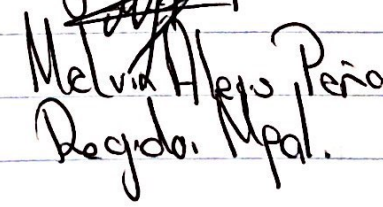 Melvin Alejo Peña
Regidor Mpal.